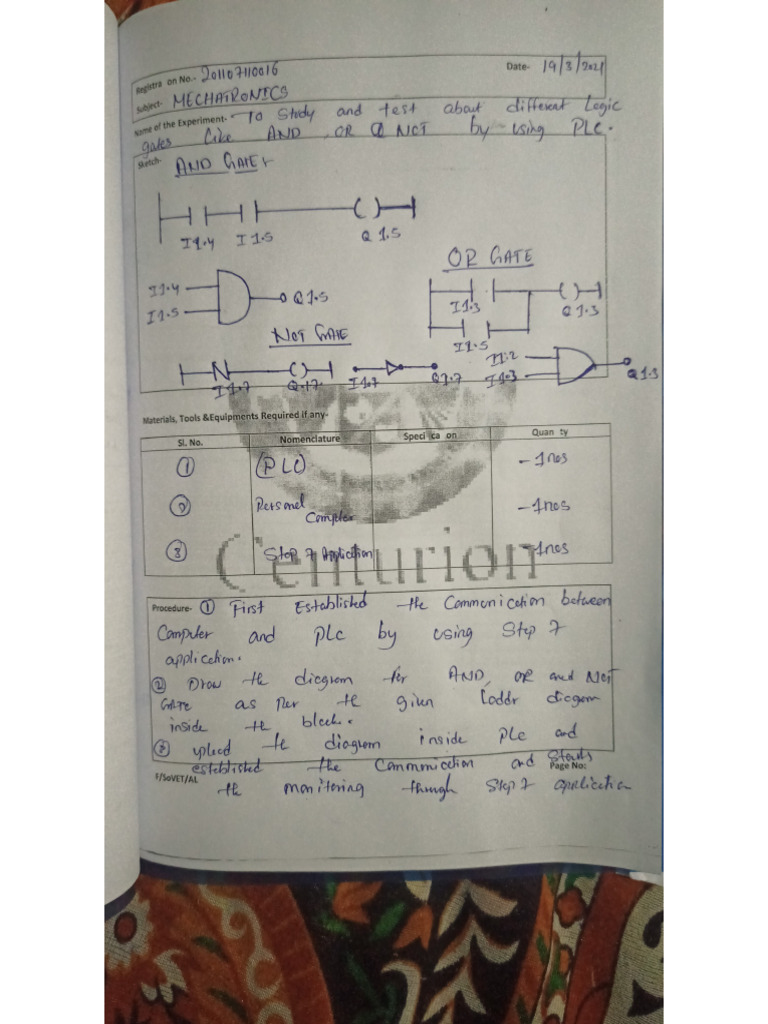 Registra on No.- 201107110016
Date- 19/3/2021
Subject- MECHATRONICS
Name of the Experiment- To Study and test about different Logic
gates Like AND, OR & NOT by using PLC.
Sketch- AND GATE
I1.4 I1.5 Q1.5
OR GATE
I1.4
Q1.5
I1.5
I1.3 Q1.3
NOT GATE
I1.5
I1.2
I1.7 I1.7 Q1.7 I1.3 Q1.3
Materials, Tools &Equipments Required if any-
Sl. No. Nomenclature Speci ca on Quan ty
① (PLC) - 1nos
② Personel - 1nos
Computer
③ Step 7 Application - 1nos
Centurion
Procedure- ① First Established the Communication between
Computer and PLC by using Step 7
application.
② Draw the diagram for AND, OR and NOT
GATE as Per the given Laddr diagram
inside the block.
③ upload the diagram inside PLC and
established the Communication and Starts
Page No:
F/SoVET/AL
the monitoring though Step 7 application